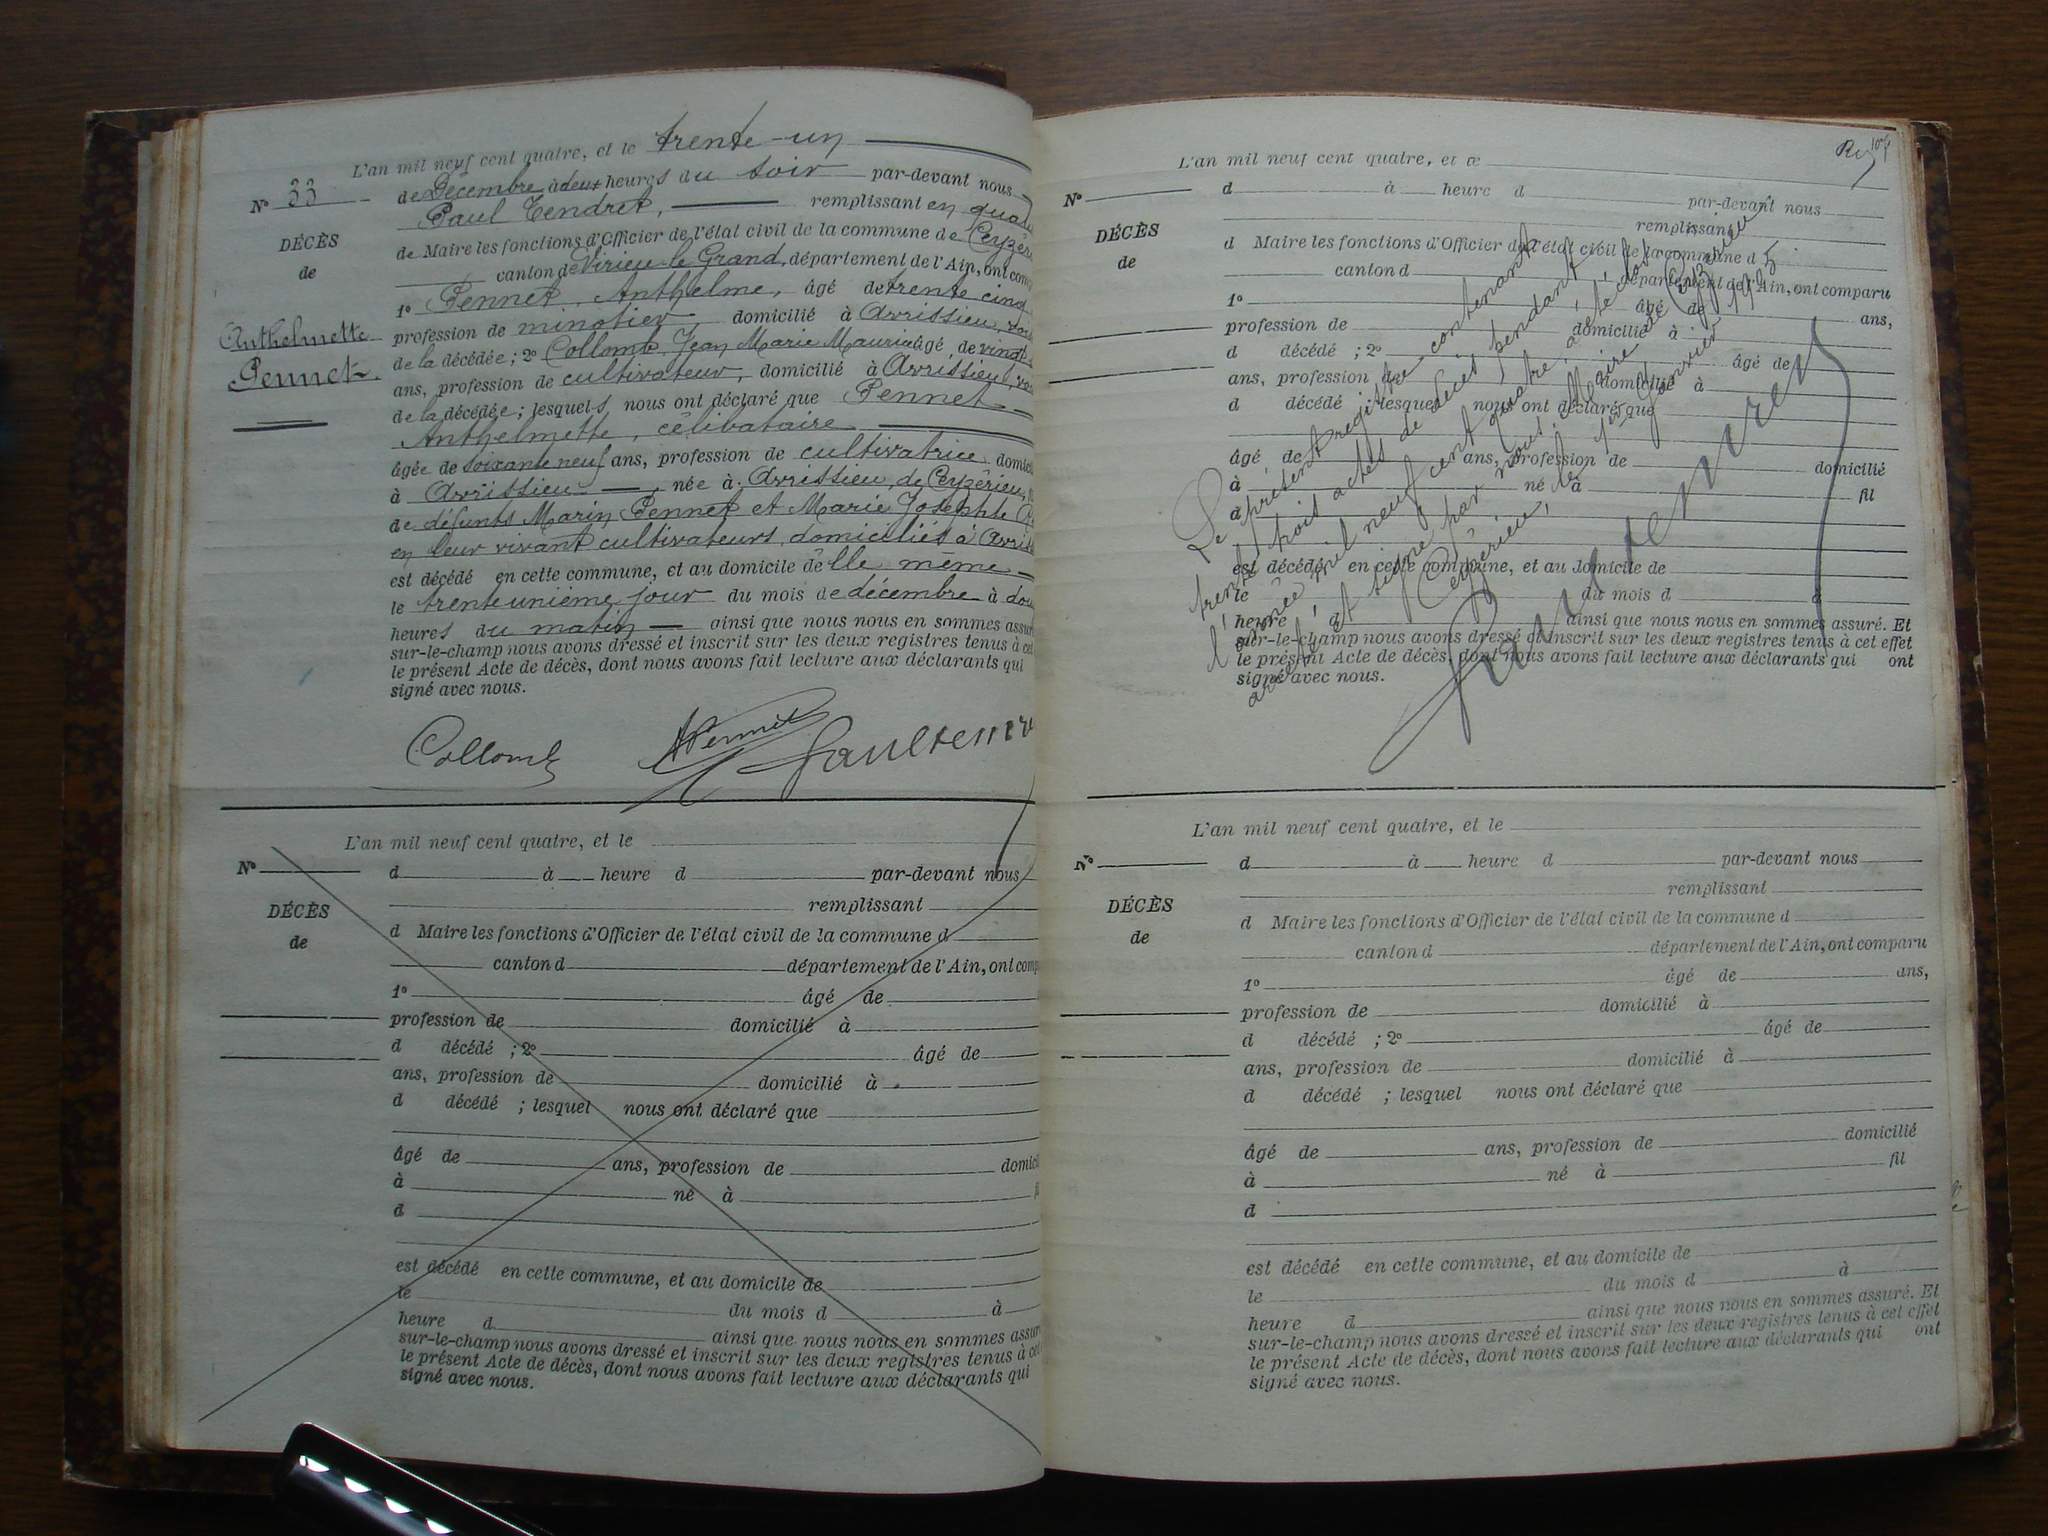 L'an mil neuf cent quatre, et le trente-un
N° 33
de Décembre à deux heures du soir par-devant nous
Paul Tendret, remplissant en
DÉCÈS
de Maire les fonctions d'Officier de l'état civil de la commune de
de
canton de Virieu-le-Grand, département de l'Ain, ont
1° Pennet, Anthelme, âgé de trente cinq
Anthelmette
Pennet.
profession de minotier domicilié à Avrissieu,
de la décédée ; 2° Collomb Jean Marie Maurice âgé de vingt
ans, profession de cultivateur, domicilié à Avrissieu,
de la décédée ; lesquels nous ont déclaré que Pennet
Anthelmette, célibataire
âgée de soixante neuf ans, profession de cultivatrice
à Avrissieu née à Avrissieu, de Ceyzérieu,
de défunts Marin Pennet et Marie Josephte
en leur vivant cultivateurs domiciliés à
est décédé en cette commune, et au domicile d'elle même
le trente unième jour du mois de décembre à
heures du matin ainsi que nous nous en sommes
sur-le-champ nous avons dressé et inscrit sur les deux registres tenus à
le présent Acte de décès, dont nous avons fait lecture aux déclarants qui
signé avec nous.
Collomb Pennet Paul Tendret
L'an mil neuf cent quatre, et le
N° d à heure d par-devant nous
remplissant
DÉCÈS
de
d Maire les fonctions d'Officier de l'état civil de la commune d
canton d département de l'Ain, ont
1° âgé de
profession de domicilié à
d décédé ; 2° âgé de
ans, profession de domicilié à
d décédé ; lesquel nous ont déclaré que
âgé de ans, profession de
à né à
d
est décédé en cette commune, et au domicile de
le du mois d à
heure d ainsi que nous nous en sommes
sur-le-champ nous avons dressé et inscrit sur les deux registres tenus à
le présent Acte de décès, dont nous avons fait lecture aux déclarants qui
signé avec nous.
L'an mil neuf cent quatre, et le
N° d à heure d par-devant nous
remplissant
DÉCÈS
de
d Maire les fonctions d'Officier de l'état civil de la commune d
canton d département de l'Ain, ont comparu
1° âgé de ans,
profession de domicilié à
d décédé ; 2° âgé de
ans, profession de domicilié à
d décédé ; lesquel nous ont déclaré que
âgé de ans, profession de domicilié
à né à fil
d
est décédé en cette commune, et au domicile de
le du mois d à
heure d ainsi que nous nous en sommes assuré. Et
sur-le-champ nous avons dressé et inscrit sur les deux registres tenus à cet effet
le présent Acte de décès, dont nous avons fait lecture aux déclarants qui ont
signé avec nous.
Le présent registre contenant
trente trois actes de décès, pendant
l'année mil neuf cent quatre, a été clos
arrêté et signé par nous, Maire de Ceyzérieu
Ceyzérieu, le 1er Janvier 1905
Paul Tendret
L'an mil neuf cent quatre, et le
N° d à heure d par-devant nous
remplissant
DÉCÈS
de
d Maire les fonctions d'Officier de l'état civil de la commune d
canton d département de l'Ain, ont comparu
1° âgé de ans,
profession de domicilié à
d décédé ; 2° âgé de
ans, profession de domicilié à
d décédé ; lesquel nous ont déclaré que
âgé de ans, profession de domicilié
à né à fil
d
est décédé en cette commune, et au domicile de
le du mois d à
heure d ainsi que nous nous en sommes assuré. Et
sur-le-champ nous avons dressé et inscrit sur les deux registres tenus à cet effet
le présent Acte de décès, dont nous avons fait lecture aux déclarants qui ont
signé avec nous.